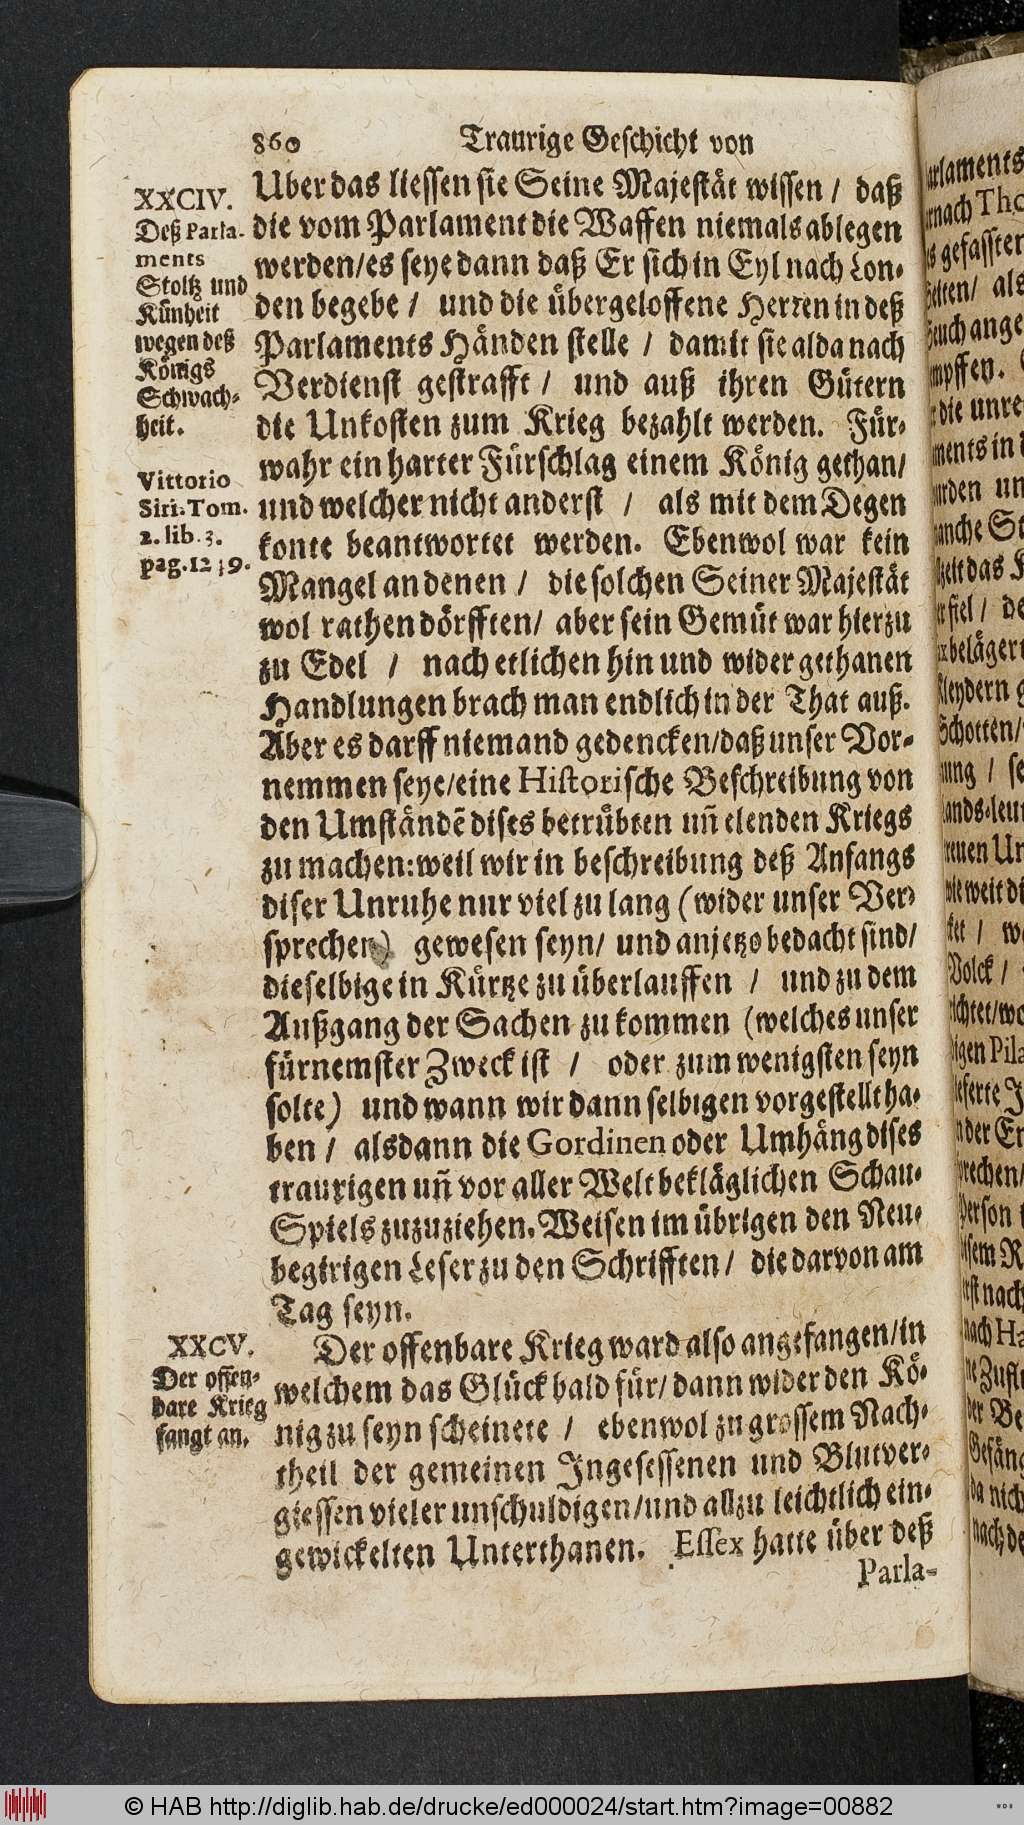 860 Traurige Geschicht von
XXCIV.
Deß Parla-
ments
Stoltz und
Künheit
wegen deß
Königs
Schwach-
heit.
Vittorio
Siri. Tom.
2. lib. 3.
Uber das liessen sie Seine Majestät wissen / daß
die vom Parlament die Waffen niemals ablegen
werden/es seye dann daß Er sich in Eyl nach Lon-
den begebe / und die übergeloffene Herren in deß
Parlaments Händen stelle / damit sie alda nach
Verdienst gestrafft / und auß ihren Gütern
die Unkosten zum Krieg bezahlt werden. Für-
wahr ein harter Fürschlag einem König gethan/
und welcher nicht anderst / als mit dem Degen
konte beantwortet werden. Ebenwol war kein
Mangel an denen / die solchen Seiner Majestät
wol rathen dörfften/ aber sein Gemüt war hierzu
zu Edel / nach etlichen hin und wider gethanen
Handlungen brach man endlich in der That auß.
Aber es darff niemand gedencken/daß unser Vor-
nemmen seye/eine Historische Beschreibung von
den Umständē dises betrübten uñ elenden Kriegs
zu machen: weil wir in beschreibung deß Anfangs
diser Unruhe nur viel zu lang (wider unser Ver-
sprechen) gewesen seyn/ und anjetzo bedacht sind/
dieselbige in Kürtze zu überlauffen / und zu dem
Außgang der Sachen zu kommen (welches unser
fürnemster Zweck ist / oder zum wenigsten seyn
solte) und wann wir dann selbigen vorgestellt ha-
ben / alsdann die Gordinen oder Umhäng dises
traurigen uñ vor aller Welt bekläglichen Schau-
Spiels zuzuziehen. Weisen im übrigen den Neu-
begirigen Leser zu den Schrifften / die darvon am
Tag seyn.
XXCV.
Der offen-
bare Krieg
fangt an.
Der offenbare Krieg ward also angefangen/in
welchem das Glück bald für/ dann wider den Kö-
nig zu seyn scheinete / ebenwol zu grossem Nach-
theil der gemeinen Ingesessenen und Blutver-
giessen vieler unschuldigen/und allzu leichtlich ein-
gewickelten Unterthanen. Essex hatte über deß
Parla-
© HAB http://diglib.hab.de/drucke/ed000024/start.htm?image=00882